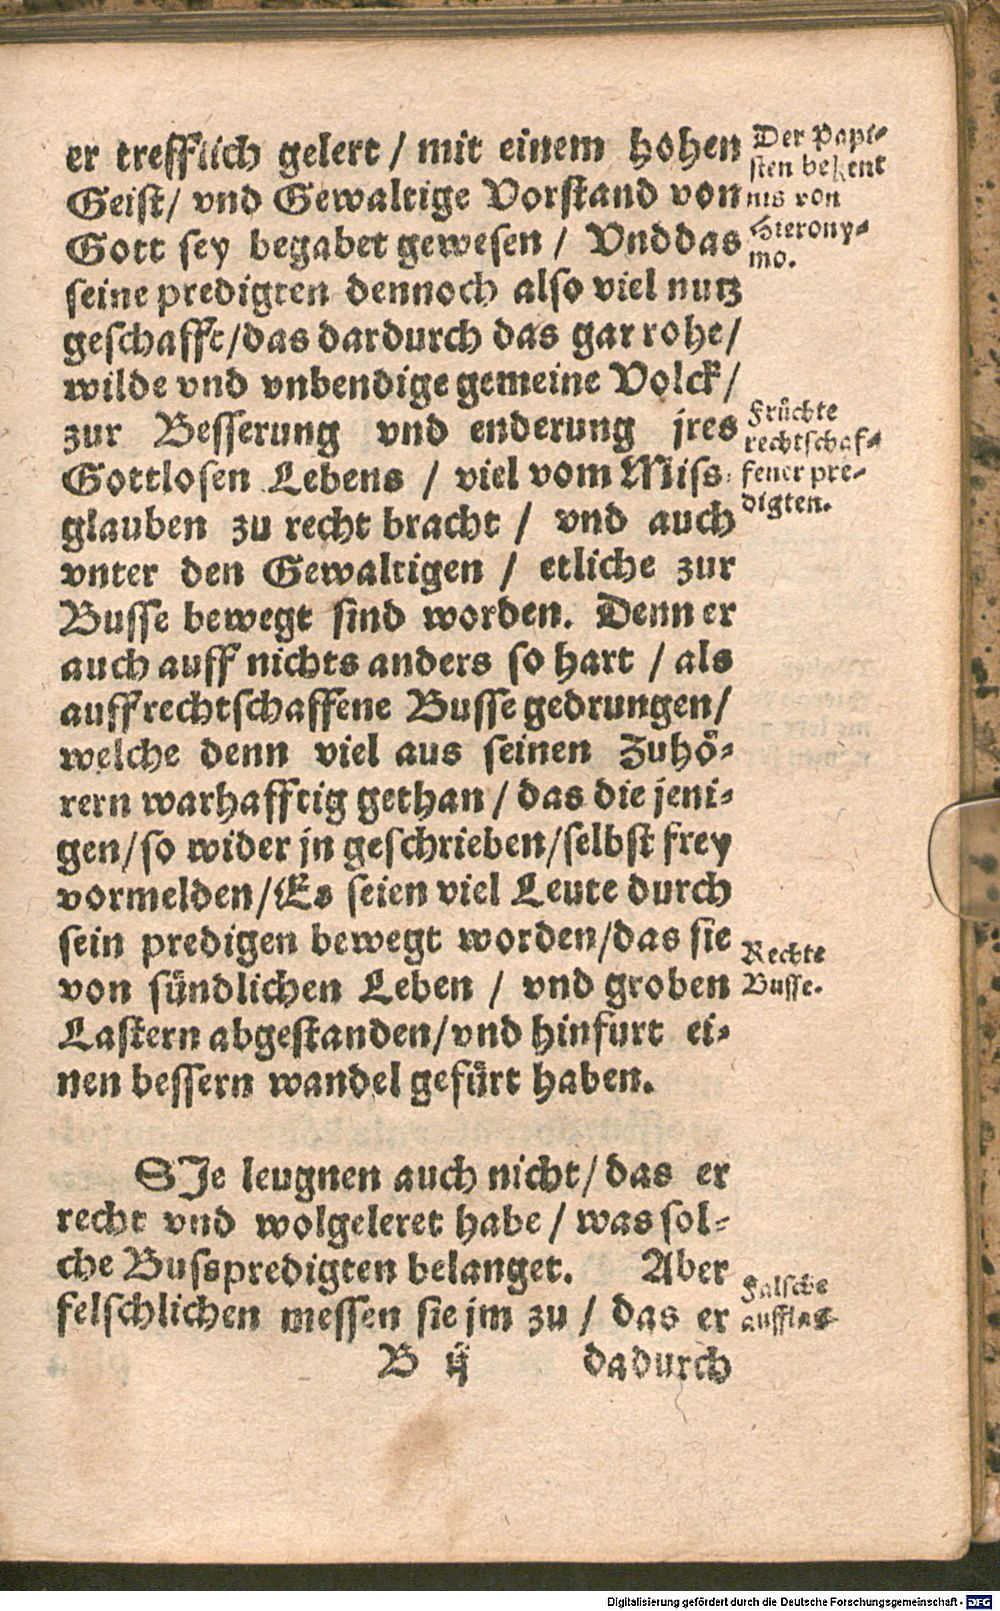 er trefflich gelert / mit einem hohen
Geist / vnd Gewaltige Vorstand von
Gott sey begabet gewesen / Vnd das
seine predigten dennoch also viel nutz
geschafft / das dardurch das gar rohe /
wilde vnd vnbendige gemeine Volck /
zur Besserung vnd enderung jres
Gottlosen Lebens / viel vom Miss-
glauben zu recht bracht / vnd auch
vnter den Gewaltigen / etliche zur
Busse bewegt sind worden. Denn er
auch auff nichts anders so hart / als
auff rechtschaffene Busse gedrungen /
welche denn viel aus seinen Zuhö-
rern warhafftig gethan / das die jeni-
gen / so wider jn geschrieben / selbst frey
vormelden / Es seien viel Leute durch
sein predigen bewegt worden / das sie
von sündlichen Leben / vnd groben
Lastern abgestanden / vnd hinfurt ei-
nen bessern wandel gefürt haben.
SJe leugnen auch nicht / das er
recht vnd wolgeleret habe / was sol-
che Busspredigten belanget. Aber
felschlichen messen sie jm zu / das er
B ij dadurch
Der Papi-
sten bekent
nis von
Hierony-
mo.
Früchte
rechtschaf-
fener pre-
digten.
Rechte
Busse.
Falsche
aufflag-
Digitalisierung gefördert durch die Deutsche Forschungsgemeinschaft - DFG